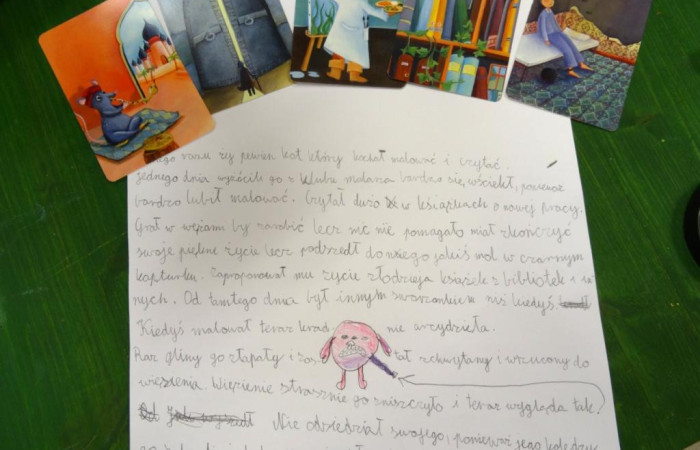 razu żył pewien kot który kochał malować i czytać.
jednego dnia wyrzucili go z klubu malarza bardzo się wściekł, ponieważ
bardzo lubił malować. Czytał dużo w książkach o nowej pracy.
Grał w wężami by zarobić lecz nic nie pomagało miał skończyć
swoje piękne życie lecz podszedł do niego jakiś mol w czarnym
kapturku. Zaproponował mu życie złodzieja książek z bibliotek i
nych. Od tamtego dnia był innym zwierzakiem niż kiedyś
Kiedyś malował teraz kradł nie arcydzieła.
Raz gliny go złapały i został schwytany i wrzucony do
więzienia. Więzienie strasznie go zniszczyło i teraz wygląda tak.
Nie odsiedział swojego, ponieważ jego koledzy